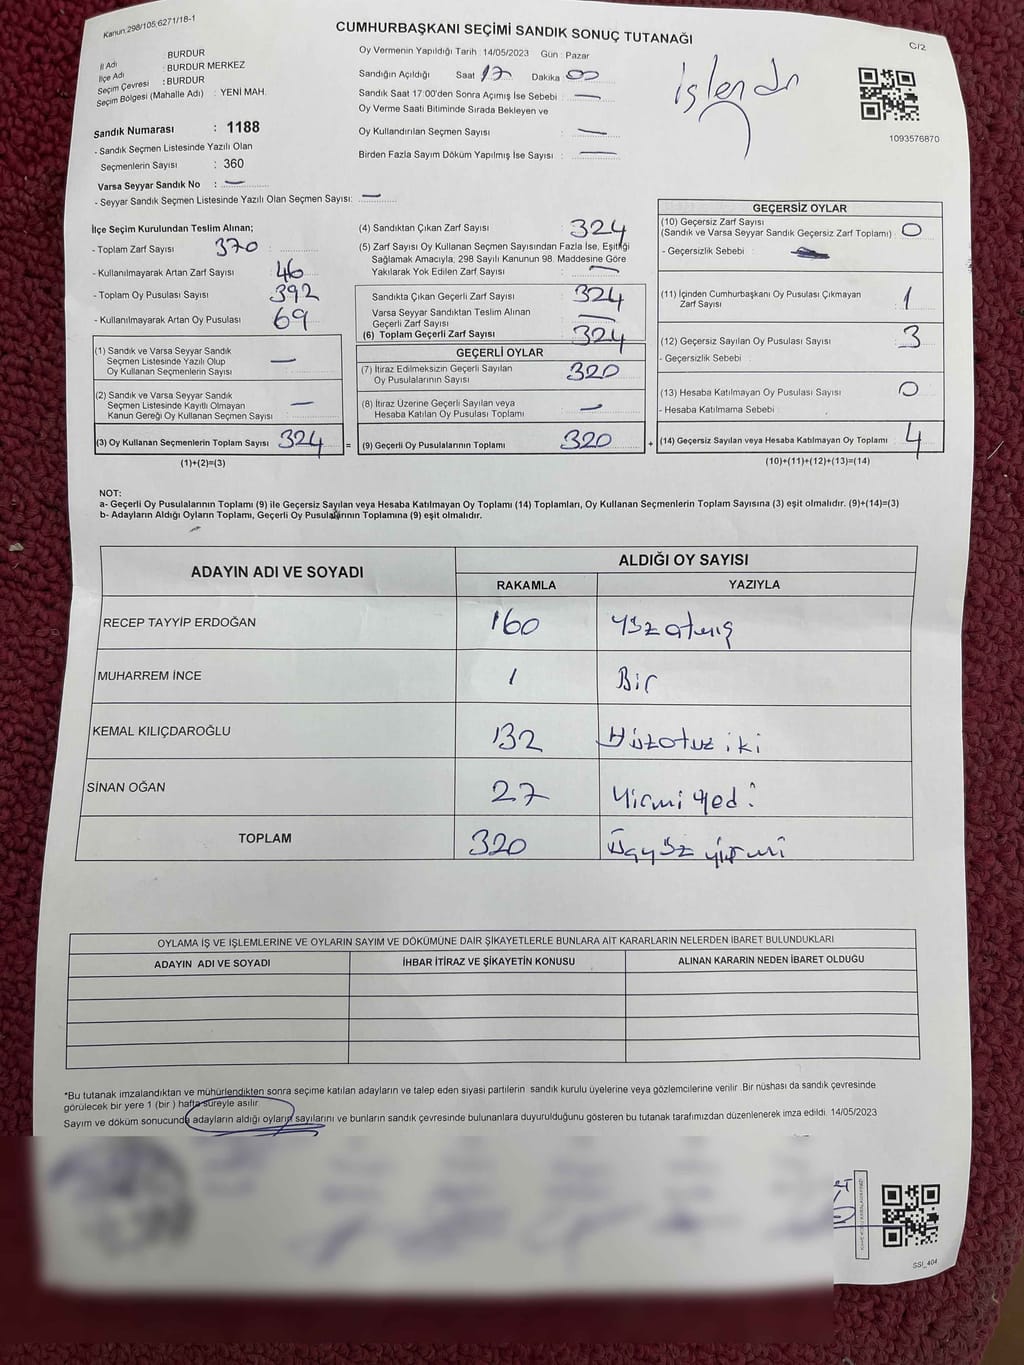 Kanun:298/105,6271/18-1
CUMHURBAŞKANI SEÇİMİ SANDIK SONUÇ TUTANAĞI
C/2
İl Adı : BURDUR
İlçe Adı : BURDUR MERKEZ
Seçim Çevresi : BURDUR
Seçim Bölgesi (Mahalle Adı) : YENİ MAH.
Sandık Numarası : 1188
- Sandık Seçmen Listesinde Yazılı Olan
Seçmenlerin Sayısı : 360
Varsa Seyyar Sandık No : —
- Seyyar Sandık Seçmen Listesinde Yazılı Olan Seçmen Sayısı: —
Oy Vermenin Yapıldığı Tarih : 14/05/2023 Gün : Pazar
Sandığın Açıldığı Saat 17 Dakika 00
Sandık Saat 17:00'den Sonra Açımış İse Sebebi : —
Oy Verme Saati Bitiminde Sırada Bekleyen ve
Oy Kullandırılan Seçmen Sayısı : —
Birden Fazla Sayım Döküm Yapılmış İse Sayısı : —
İşlendi
1093576870
İlçe Seçim Kurulundan Teslim Alınan;
- Toplam Zarf Sayısı : 370
- Kullanılmayarak Artan Zarf Sayısı : 46
- Toplam Oy Pusulası Sayısı : 392
- Kullanılmayarak Artan Oy Pusulası : 69
(1) Sandık ve Varsa Seyyar Sandık
Seçmen Listesinde Yazılı Olup
Oy Kullanan Seçmenlerin Sayısı : —
(2) Sandık ve Varsa Seyyar Sandık
Seçmen Listesinde Kayıtlı Olmayan
Kanun Gereği Oy Kullanan Seçmen Sayısı : —
(3) Oy Kullanan Seçmenlerin Toplam Sayısı : 324 =
(1)+(2)=(3)
(4) Sandıktan Çıkan Zarf Sayısı : 324
(5) Zarf Sayısı Oy Kullanan Seçmen Sayısından Fazla İse, Eşitliği
Sağlamak Amacıyla, 298 Sayılı Kanunun 98. Maddesine Göre
Yakılarak Yok Edilen Zarf Sayısı : —
Sandıkta Çıkan Geçerli Zarf Sayısı : 324
Varsa Seyyar Sandıktan Teslim Alınan
Geçerli Zarf Sayısı : —
(6) Toplam Geçerli Zarf Sayısı : 324
GEÇERLİ OYLAR
(7) İtiraz Edilmeksizin Geçerli Sayılan
Oy Pusulalarının Sayısı : 320
(8) İtiraz Üzerine Geçerli Sayılan veya
Hesaba Katılan Oy Pusulası Toplamı : —
(9) Geçerli Oy Pusulalarının Toplamı : 320 +
GEÇERSİZ OYLAR
(10) Geçersiz Zarf Sayısı
(Sandık ve Varsa Seyyar Sandık Geçersiz Zarf Toplamı) : 0
- Geçersizlik Sebebi :
(11) İçinden Cumhurbaşkanı Oy Pusulası Çıkmayan
Zarf Sayısı : 1
(12) Geçersiz Sayılan Oy Pusulası Sayısı : 3
- Geçersizlik Sebebi :
(13) Hesaba Katılmayan Oy Pusulası Sayısı : 0
- Hesaba Katılmama Sebebi :
(14) Geçersiz Sayılan veya Hesaba Katılmayan Oy Toplamı : 4
(10)+(11)+(12)+(13)=(14)
NOT:
a- Geçerli Oy Pusulalarının Toplamı (9) ile Geçersiz Sayılan veya Hesaba Katılmayan Oy Toplamı (14) Toplamları, Oy Kullanan Seçmenlerin Toplam Sayısına (3) eşit olmalıdır. (9)+(14)=(3)
b- Adayların Aldığı Oyların Toplamı, Geçerli Oy Pusulalarının Toplamına (9) eşit olmalıdır.
ADAYIN ADI VE SOYADI ALDIĞI OY SAYISI
RAKAMLA YAZIYLA
RECEP TAYYİP ERDOĞAN 160 Yüzatmış
MUHARREM İNCE 1 Bir
KEMAL KILIÇDAROĞLU 132 Yüzotuz iki
SİNAN OĞAN 27 Yirmi yedi
TOPLAM 320 Üçyüz yirmi
OYLAMA İŞ VE İŞLEMLERİNE VE OYLARIN SAYIM VE DÖKÜMÜNE DAİR ŞİKAYETLERLE BUNLARA AİT KARARLARIN NELERDEN İBARET BULUNDUKLARI
ADAYIN ADI VE SOYADI İHBAR İTİRAZ VE ŞİKAYETİN KONUSU ALINAN KARARIN NEDEN İBARET OLDUĞU
*Bu tutanak imzalandıktan ve mühürlendikten sonra seçime katılan adayların ve talep eden siyasi partilerin sandık kurulu üyelerine veya gözlemcilerine verilir .Bir nüshası da sandık çevresinde
görülecek bir yere 1 (bir ) hafta süreyle asılır.
Sayım ve döküm sonucunda adayların aldığı oyların sayılarını ve bunların sandık çevresinde bulunanlara duyurulduğunu gösteren bu tutanak tarafımızdan düzenlenerek imza edildi. 14/05/2023
SSİ_404